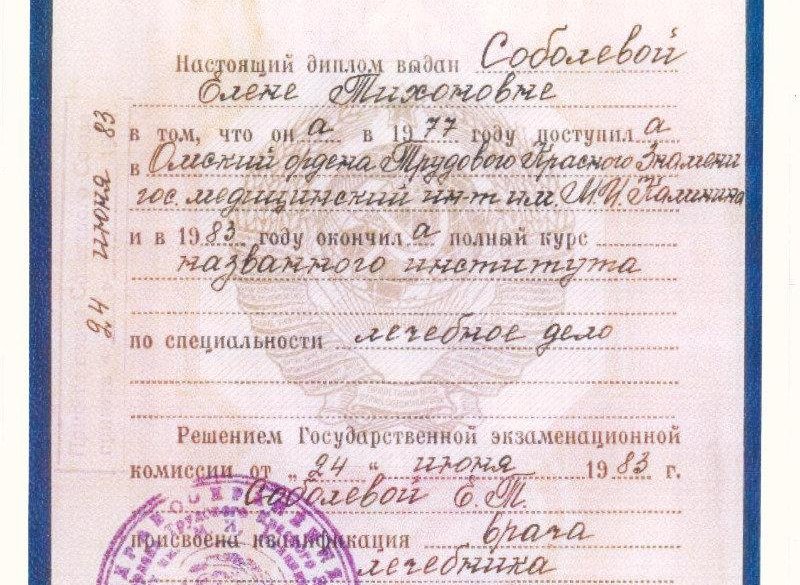 Настоящий диплом выдан Соболевой
Елене Тихоновне
в том, что он а в 1977 году поступил а
в Омский ордена Трудового Красного Знамени
гос. медицинский ин-т им. М.И. Калинина
и в 1983 году окончил а полный курс
названного института
по специальности лечебное дело
Решением Государственной экзаменационной
комиссии от „24“ июня 1983 г.
Соболевой Е.Т.
присвоена квалификация врача
лечебника
24 июня 83